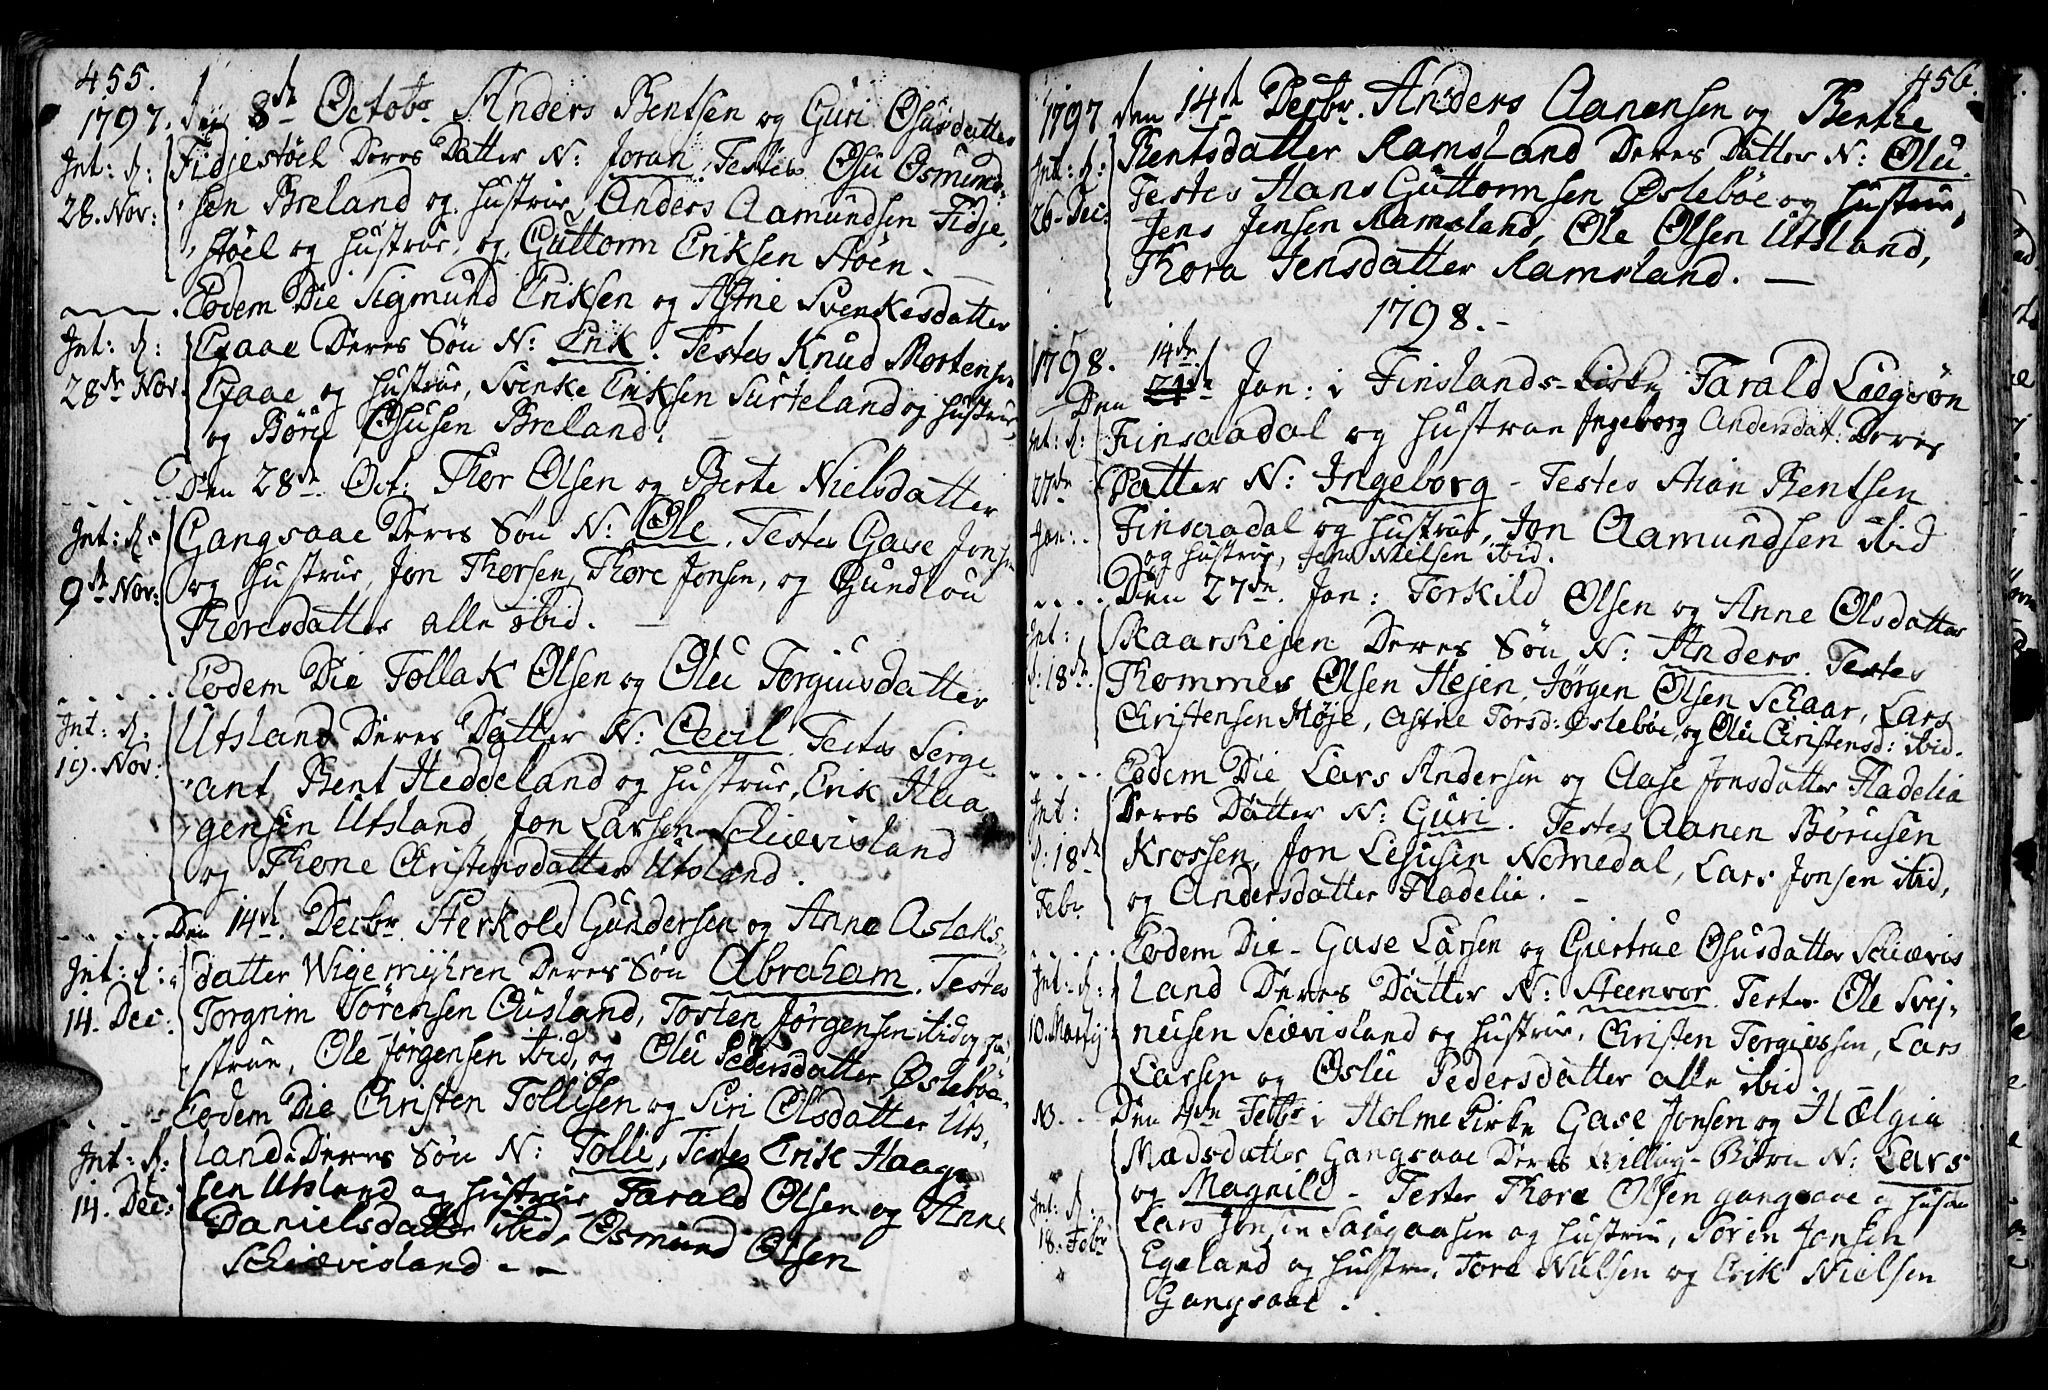 455.
1797. den 8de Octobr Anders Bentsen og Guri Osusdatter
Int: K: Fidjestöel Deres Datter N: Joran. Testes Osu Osmund-
28. Nov: sen Breland og Hustrue, Anders Aamundsen Fidje-
stöel og Hustrue, og Guttorm Eriksen Stöen. —
Eodem Die Sigmund Eriksen og Astrie Svenkesdatter
Int: K: Egaae Deres Sön N: Erik. Testes Knud Mortensen
28de Nov. Egaae og Hustrue, Svenke Eriksen Surteland og Hustrue,
og Böru Osusen Breland.
Den 28de Oct: Thor Olsen og Berte Nielsdatter
Int: K: Gangsaae Deres Sön N: Ole. Testes Gase Jonsen
9de Nov: og Hustrue, Jon Thorsen, Thore Jonsen, og Gundlou
Thoresdatter alle ibid. —
Eodem Die Tollak Olsen og Olu Torgiusdatter
Int: K: Utsland Deres Datter N: Cecil. Testes Serge-
19. Nov: ant Bent Heddeland og Hustrue, Erik Haa-
gensen Utsland, Jon Larsen Schiævisland
og Thone Christensdatter Utsland.
Den 14de Decbr. Sterkold Gundersen og Anne Aslaks-
Int: K: datter Wigemyhren Deres Sön Abraham. Testes
14. Dec: Torgrim Sörensen Ousland, Tosten Jörgensen ibid og Hu-
strue, Ole Jörgensen ibid, og Olu Pedersdatter Ösleböe.
Eodem Die Christen Tollisen og Siri Olsdatter Uts-
Int: K: land Deres Sön N: Tolli, Testes Erik Haagen-
14. Dec: sen Utsland og Hustrue, Tarald Olsen og Anne
Danielsdatter ibid, Osmund Olsen
Schiævisland. - -
456.
1797 den 14de Decbr. Anders Aanensen og Benthe
Int: K: Bentsdatter Ramsland Deres Datter N: Olu.
26. Dec: Testes Hans Guttormsen Ösleböe og Hustrue,
Jens Jensen Ramsland, Ole Olsen Utsland,
Thora Jensdatter Ramsland. —
1798. -
1798. 14de
Den 21de Jan: i Finslands-Kirke Tarald Luegsön
Int: K: Finsaadal og Hustrue Ingeborg Andersdatt: Deres
27de Datter N: Ingeborg - Testes Stian Bentsen
Jan: Finsaadal og Hustrue, Jon Aamundsen ibid
og Hustrue, Jens Nielsen ibid.
Den 27de Jan: Torkild Olsen og Anne Olsdatter
Int: Skaarshejen Deres Sön N: Anders. Testes
K: 18de Thommes Olsen Hejen, Jörgen Olsen Schaar, Lars
Christensen Höje, Astrie Torsd: Ösleböe, og Olu Christensd: ibid.
Eodem Die Lars Andersen og Aase Jonsdatter Fladelia
Int: Deres Datter N: Guri. Testes Aanen Börusen
K: 18de Krossen, Jon Lesusen Nomedal, Lars Jonsen ibid,
Febr og Andersdatter Fladelia. -
Eodem Die - Gase Larsen og Giertrue Osusdatter Schiævis
Int: K: land Deres Datter N: Steenvor. Testes Ole Svej-
10. Martij nusen Sciævisland og Hustrue, Christen Torgiussen, Lars
Larsen og Oslu Pedersdatter alle ibid. —
N. Den 4de Febr i Holme Kirke Gase Jonsen og Hælgia
Madsdatter Gangsaae Deres Tvilling-Börn N: Lars
og Magnild - Testes Thore Olsen Gangsaae og Hustrue
Int: K: Lars Jonsen Saugaasen og Hustrue, Sören Jonsen
18. Febr Egeland og Hustrue, Tore Nielsen og Erik Nielsen
Gangsaae.